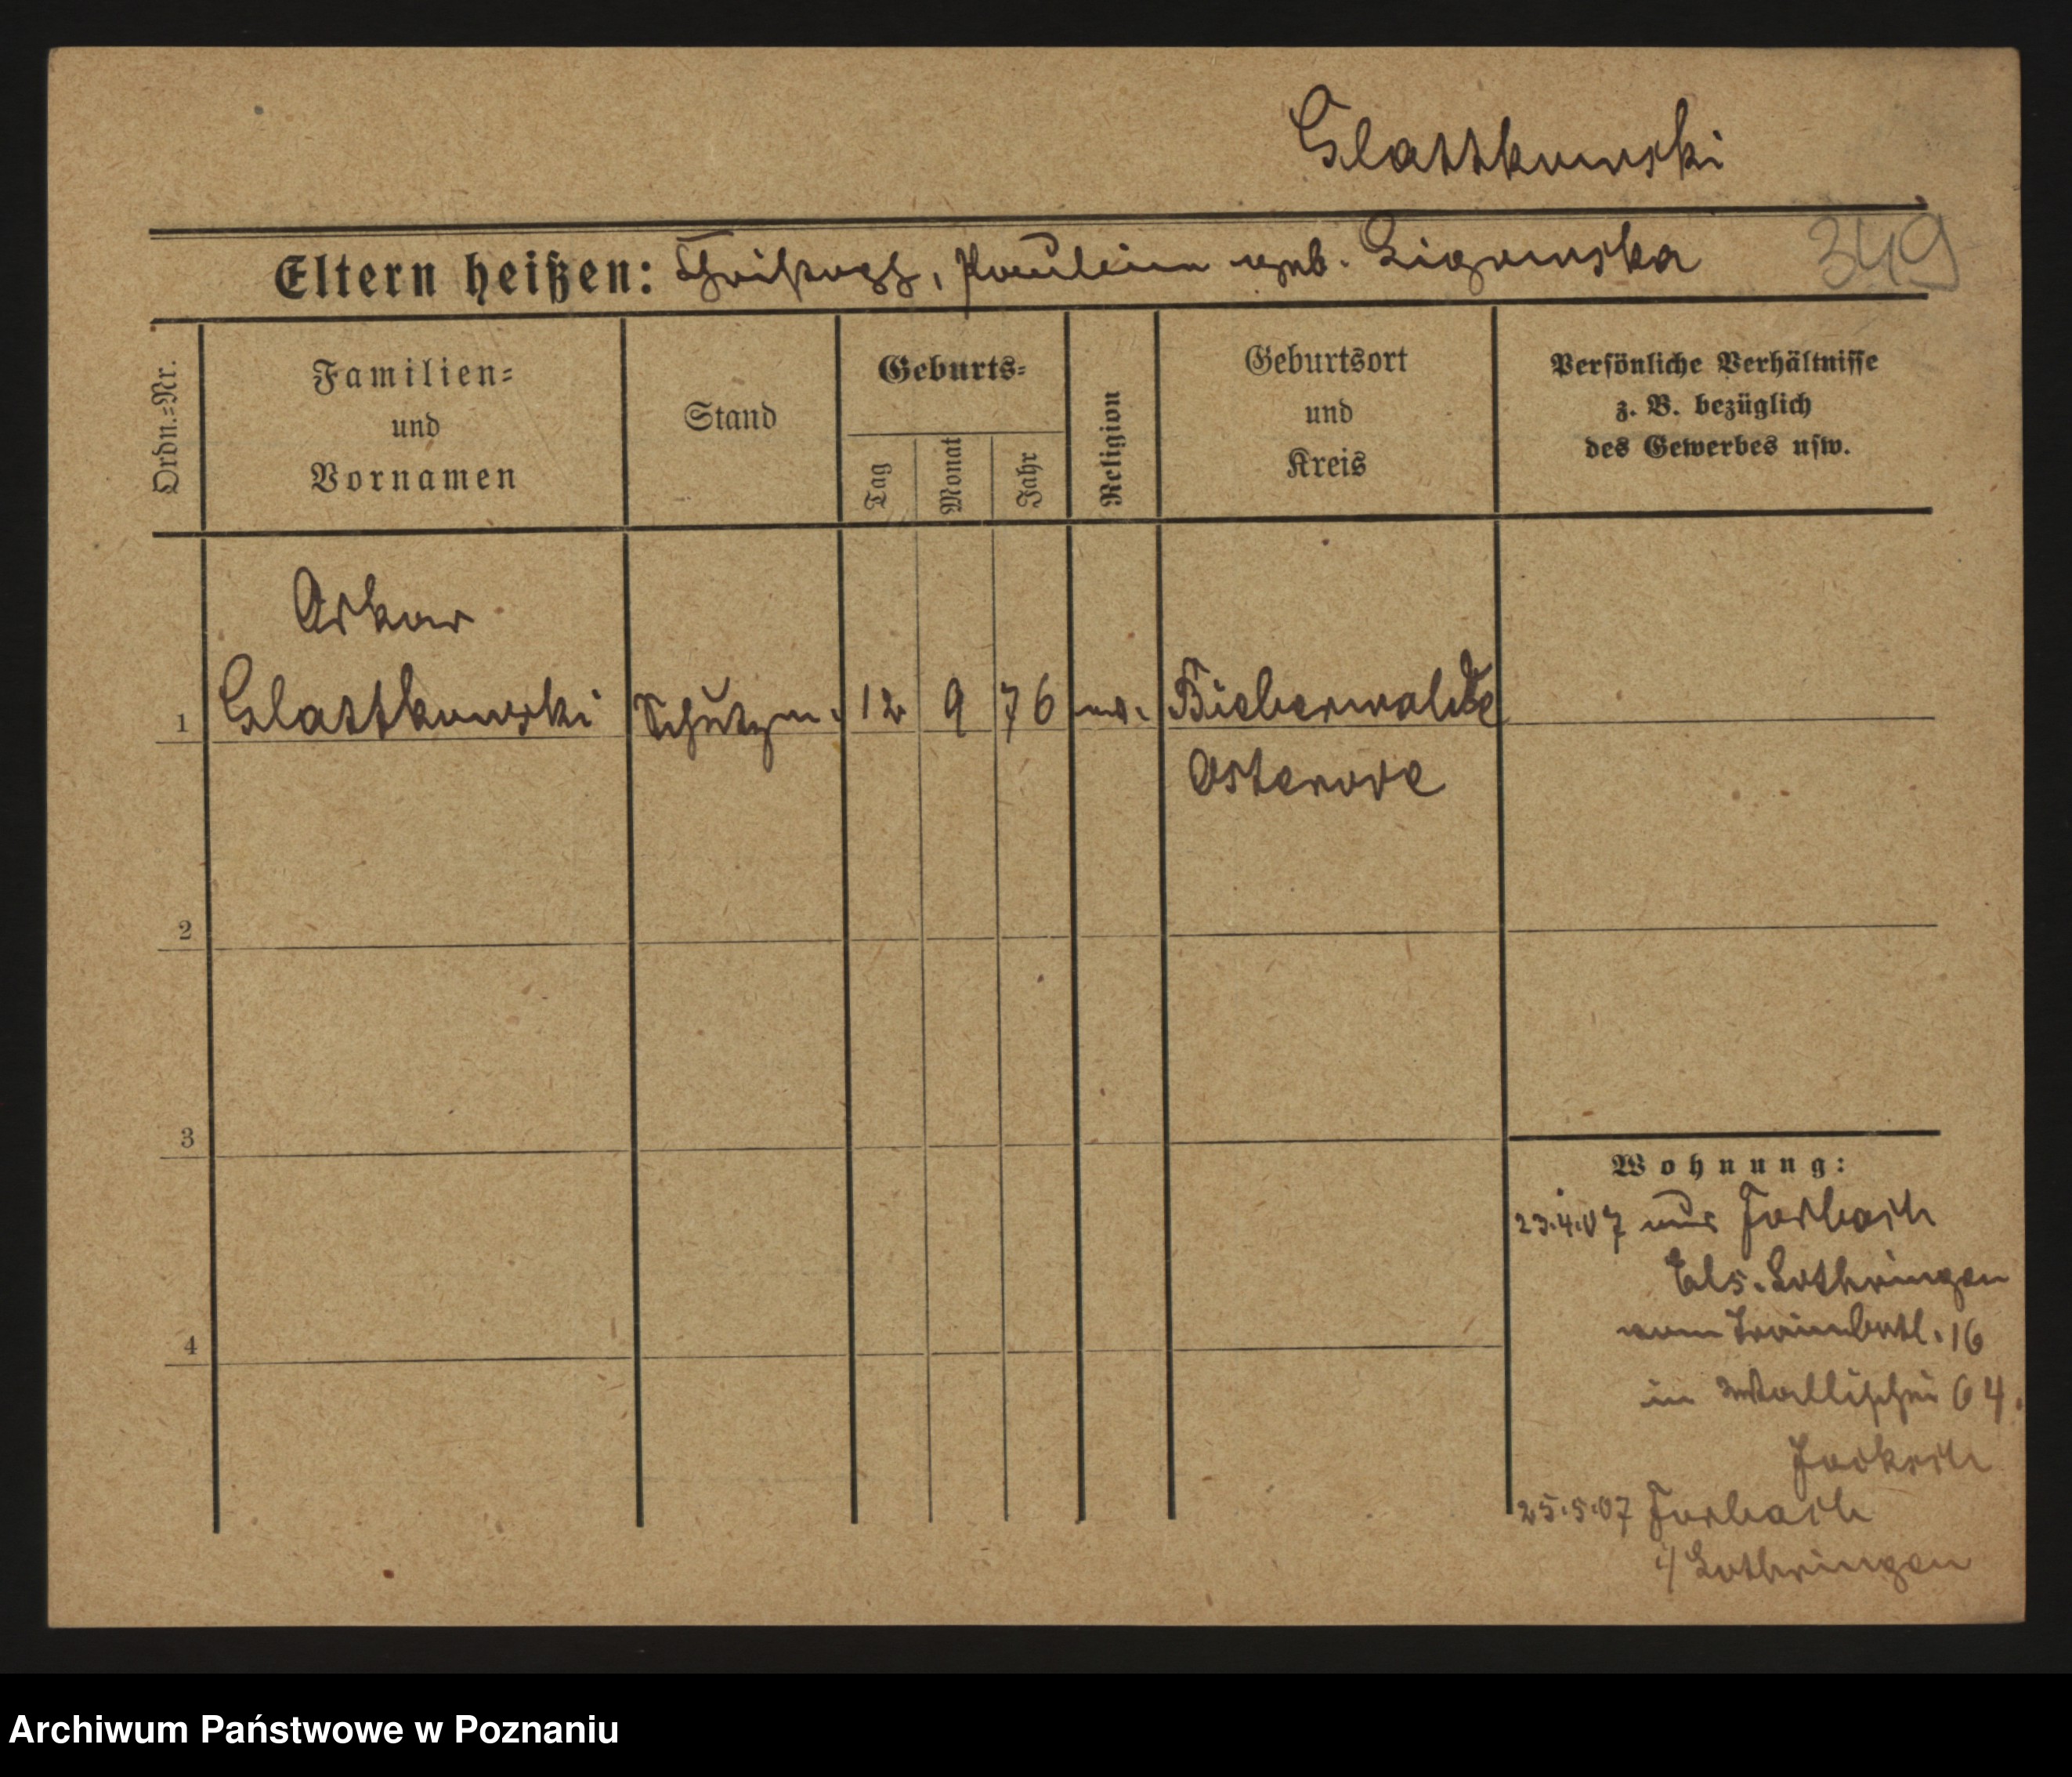 Glattkowski
Eltern heißen: Christoph, Pauline geb. Ligowska
349
Ordn.-Nr.
Familien-
und
Vornamen
Stand
Geburts-
Tag
Monat
Jahr
Religion
Geburtsort
und
Kreis
Persönliche Verhältnisse
z. B. bezüglich
des Gewerbes usw.
Oskar
1 Glattkowski Schutzm. 12 9 76 ev. Bieberwalde
Osterode
2
3
4
Wohnung:
23.4.07 aus Forbach
Els. Lothringen
vom Trainbatl. 16
in Wallischei 64.
25.5.07 Forbach
i/ Lothringen
Archiwum Państwowe w Poznaniu